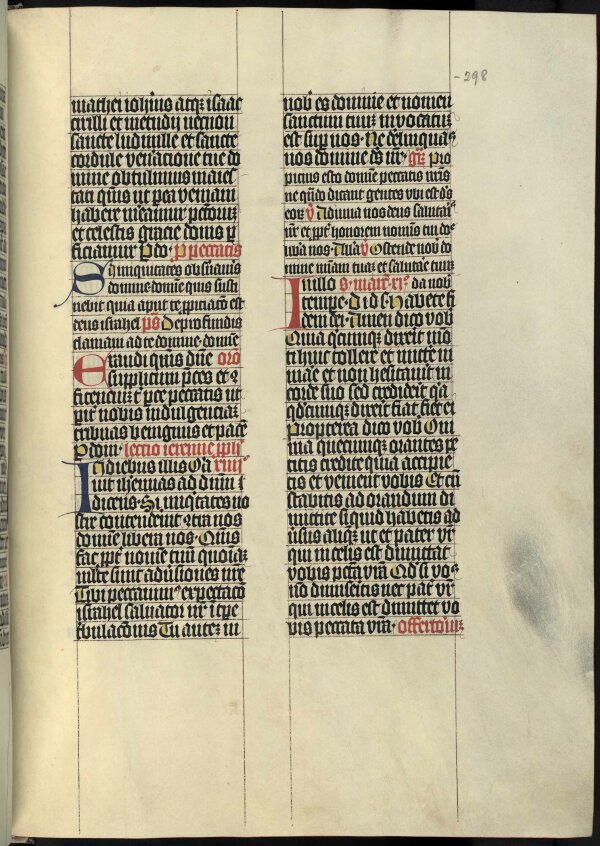 -298
mathei iohnis atqz isaac
cirilli et metudij necnon
sancte ludmille et sancte
cordule veneracione tue do
mine obtulimus maies
tati quis ut pca veniam
habere meamur pctoruz
et celestis gracie donis p
ficiamur P do· P peccatis
Si iniquitates obsuaueis
domine domine quis susti
nebit quia aput te ppiciacō est
deus israhel ps De profundis
clamaui ad te domine domine
Exaudi quis dūe oro
supplicum pces et 9
fitenciuz t pce peccatis ut
pit nobis indulgenciaz
tribuas benignus et pacē
P dom· lectio ieremie pph
In diebus illis Oa xiiij
uit iheremias ad dnm
dicens· Si iniqtates no
stre contenderint 9tra nos
domie libera nos· Quis
fac ppt nomē tuū quoiaz
multe sunt aduisiones nre
Tibi peccauim9 expectaco
israhel saluator nr i tpe
tbulacōnis Tu autez in
nob es domine et nomen
sanctum tuuz inuocatuz
est sup nos· Ne delinquas
nos domine ds nr· gr Pro
picius esto domīe peccatis nris
ne qndo dicant gentes vbi est ds
eor v Adiuua nos deus salutar
nr et ppt honorem nominis tui do
libā nos· Alla v Ostende nob do
mine misām tuaz et salutāe tuuz
In illo s· mare xi· da nob
tempe· Dix ihs· Habete fi
dem dei· Amen dico vob
Quia qcunqz dixerit mō
ti huic tollere et mitte in
mare et non hesitauit in
corde suo sed crediderit qa
qdcunqz dixerit fiat fiet ei
Propterea dico vob Om
nia quecunqz orantes pe
titis credite quia accipie
tis et venient vobis Et cū
stabitis ad orandum di
mittite si quid habetis ad
uisus aliqz ut et pater vr
qui in celis est dimittat
vobis pctā vrā Qd si vos
nō dimiseritis nec pat vr
qui in celis est dimittet vo
bis peccata vrā· offertoriuz